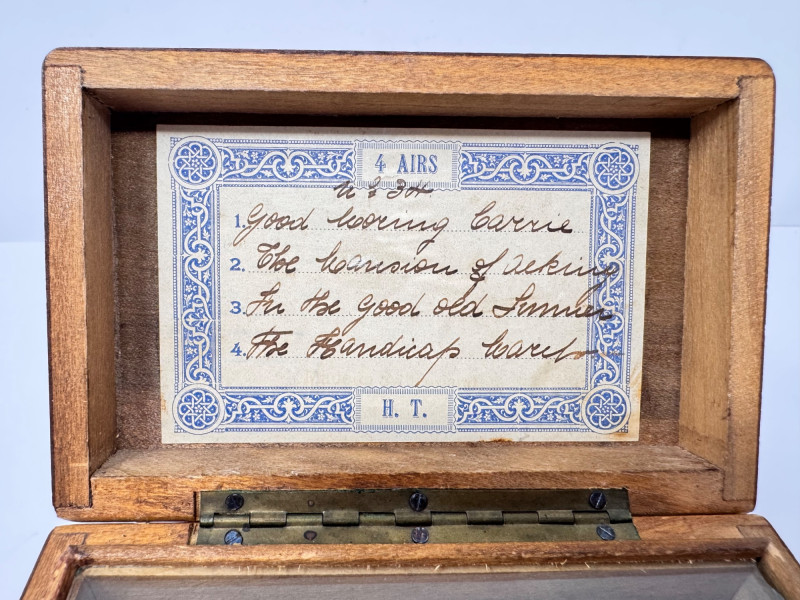 4 AIRS
1. Good Moring Carrie
2. The Mansion of Aeking
3. In the Good old Summer
4. The Handicap March
H. T.